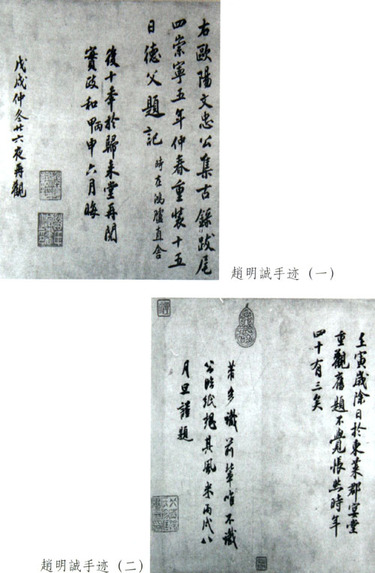 右歐陽文忠公集古錄跋尾
四崇寧五年仲春重裝十五
日德父題記 時在鴻臚直舍
後十年於歸來堂再閱
實政和甲丙申六月晦
戊戌仲冬廿六夜再觀
趙明誠手迹（一）
壬寅歲除日於東萊郡宴堂
重觀舊題不覺悵然時年
四十有三矣
芾多識前輩唯不識
公臨紙想其風采丙戌八
月旦謹題
趙明誠手迹（二）